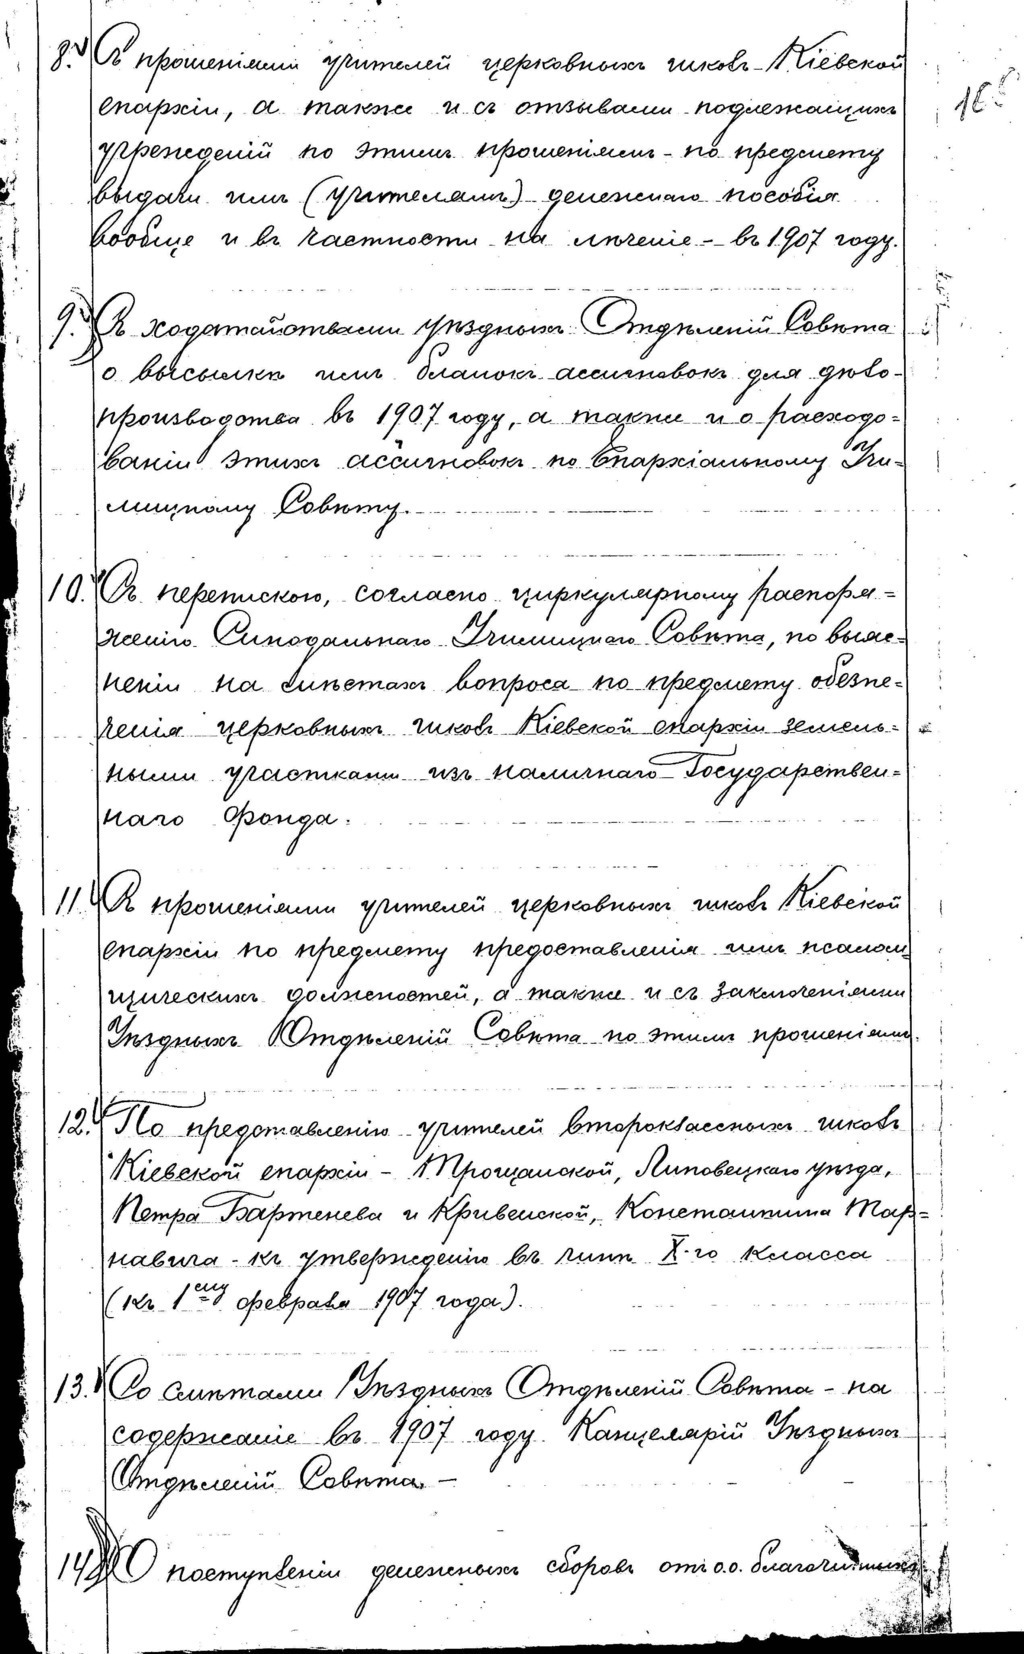 8. Съ прошеніями учителей церковныхъ школъ Кіевской
епархіи, а также и съ отзывами подлежащихъ
учрежденій по этимъ прошеніямъ - по предмету
выдачи имъ (учителямъ) денежнаго пособія
вообще и въ частности на лѣченіе - въ 1907 году.
9. Съ ходатайствами Уѣздныхъ Отдѣленій Совѣта
о высылкѣ имъ бланокъ ассигновокъ для дѣло-
производства въ 1907 году, а также и о расходо=
ваніи этихъ ассигновокъ по Епархіальному Учи=
лищному Совѣту.
10. Съ перепискою, согласно циркулярному распоря=
женію Синодальнаго Училищнаго Совѣта, по выяс=
неніи на мѣстахъ вопроса по предмету обезпе=
ченія церковныхъ школъ Кіевской епархіи земель=
ными участками изъ наличнаго Государствен=
наго Фонда.
11. Съ прошеніями учителей церковныхъ школъ Кіевской
епархіи по предмету предоставленія имъ псалом
щическихъ должностей, а также и съ заключеніями
Уѣздныхъ Отдѣленій Совѣта по этимъ прошеніямъ.
12. По представленію учителей второклассныхъ школъ
Кіевской епархіи - Трощанской, Липовецкаго уѣзда,
Петра Бартенева и Кривенской, Константина Тар=
навича - къ утвержденію въ чинѣ X-го класса
(къ 1ему февраля 1907 года).
13. Со смѣтами Уѣздныхъ Отдѣленій Совѣта - на
содержаніе въ 1907 году Канцелярій Уѣздныхъ
Отдѣленій Совѣта. -
14. О поступленіи денежныхъ сборовъ отъ о.о. благочинныхъ